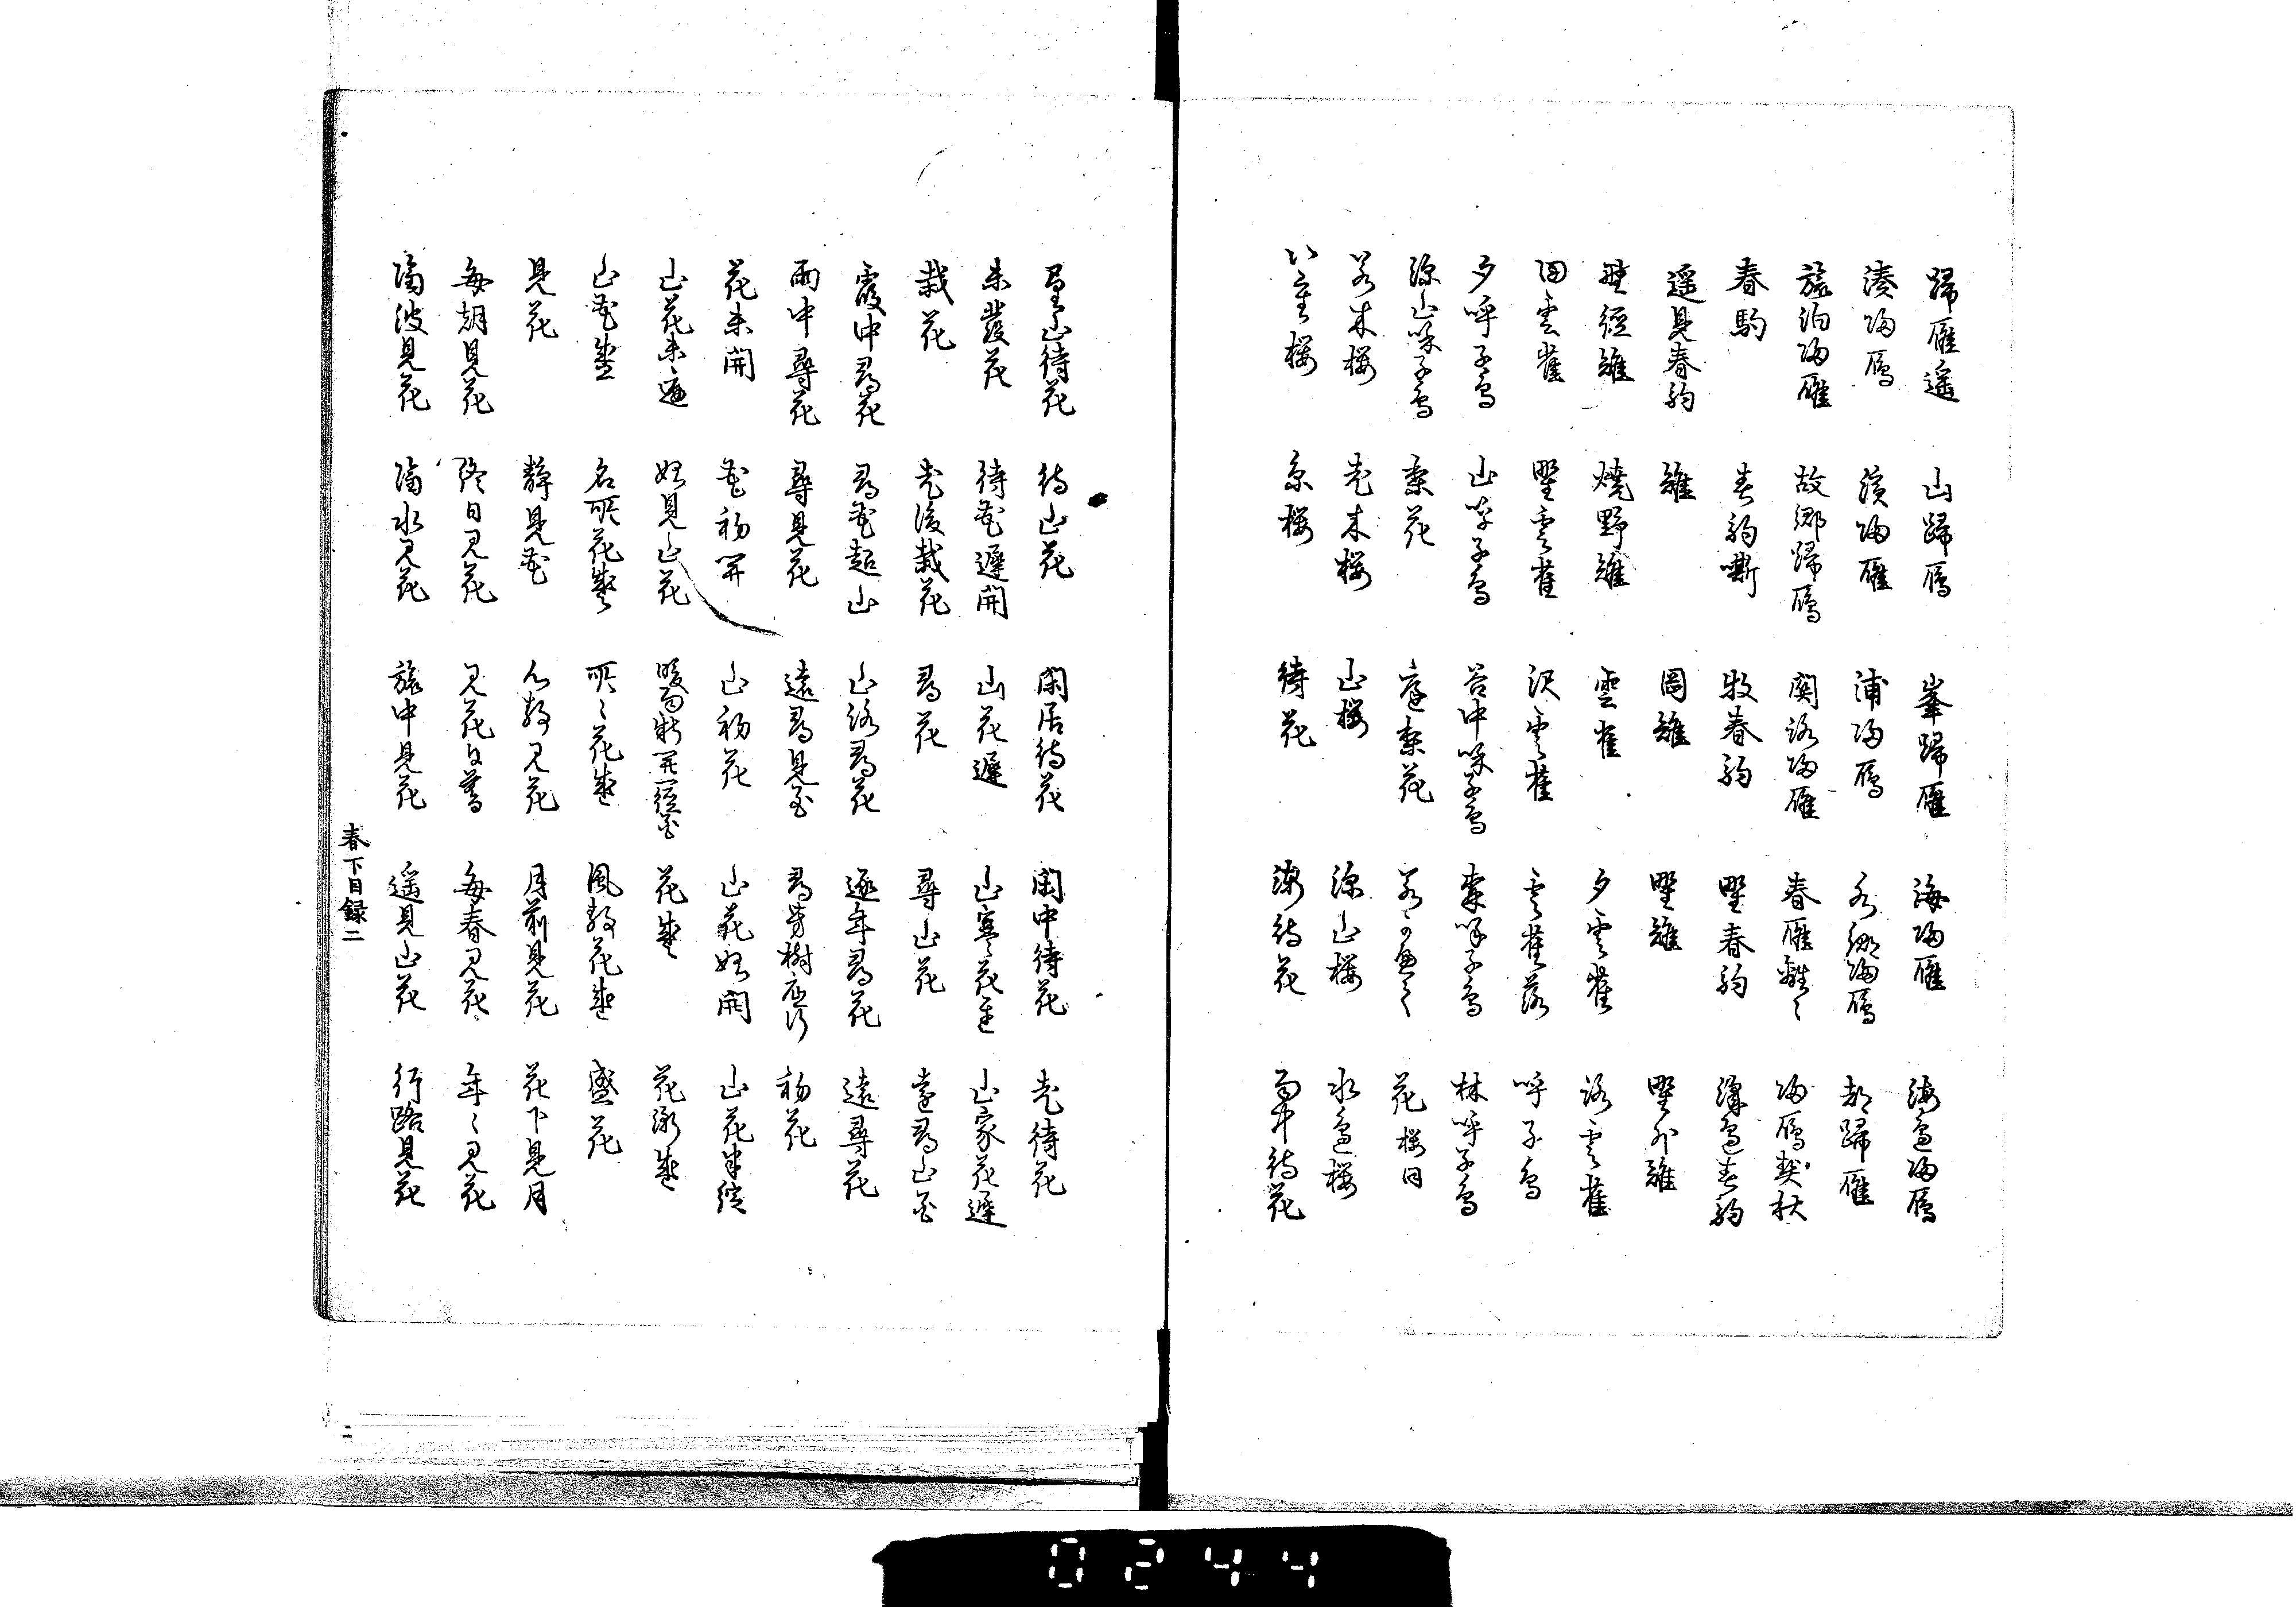 歸雁遥 山歸鴈 峯歸雁 海帰雁 海邊帰鴈
湊帰鴈 濱帰雁 浦帰鴈 水郷帰鴈 都歸雁
旅泊帰雁 故郷歸鴈 関路帰雁 春雁離々 帰鴈契秋
春駒 春駒嘶 牧春駒 野春駒 澤邊春駒
遥見春駒 雉 岡雉 野雉 野外雉
野径雉 焼野雉 雲雀 夕雲雀 路雲雀
田雲雀 野雲雀 沢雲雀 雲雀落 呼子鳥
夕呼子鳥 山呼子鳥 谷中呼子鳥 森呼子鳥 林呼子鳥
深山呼子鳥 梨花 庭梨花 花櫻
若木桜 老木桜 山桜 深山桜 水邊桜
八重桜 糸桜 待花 海待花 雨中待花
尋山待花 待山花 閑居待花 閑中待花 老待花
未發花 待花遲開 山花遲 山寒花遅 山家花遲
栽花 老後栽花 尋花 尋山花 遠尋山花
霞中尋花 尋花超山 山路尋花 逐年尋花 遠尋花
雨中尋花 尋見花 遠尋見花 尋芳樹 初花
花未開 花初開 山初花 山花始開 山花半綻
山花未遍 始見山花 暖雨新開一径花 花盛 花漸盛
山花盛 名所花盛 所々花盛 風静花盛 盛花
見花 静見花 心静見花 月前見花 花下見月
毎朝見花 終日見花 見花日暮 毎春見花 年々見花
隔波見花 隔水見花 旅中見花 遥見山花 行路見花
春下目録 二
0244